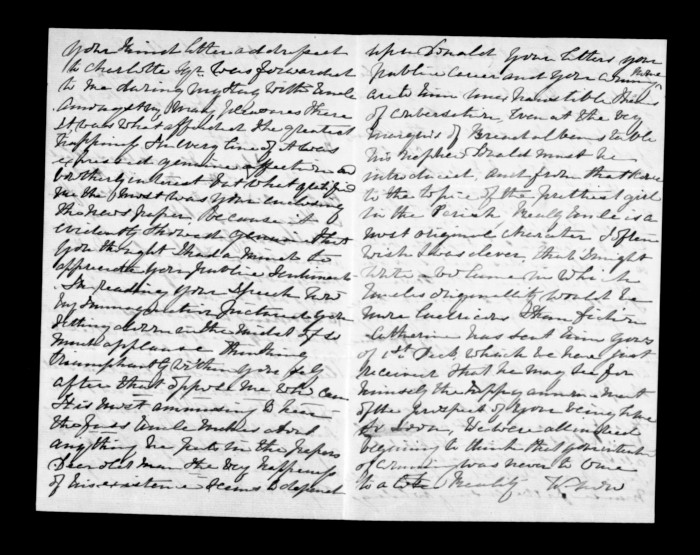 your kind letter addressed
to Charlotte Sqr. was forwarded
to me during my stay with Uncle
Amongst my many pleasures there
it was what afforded the greatest
happiness. In every line of it was
expressed genuine affection and
brotherly interest but what gratified
me the most was your enclosing
the newspaper, because it
evidently showed that
you thought I had a mind to
appreciate your public sentiments
In reading your Speech how
my imagination pictured you
sitting down in the midst of so
much applause thinking
triumphantly within yourself
after that oppose me who can
It is most amusing to hear
the fuss Uncle makes about
anything he puts in the papers
Dear old man the very happiness
of his existence seems to depend
upon Donald your letters your
public career and your coming home
are to him inexhaustible themes
of conversation. Even at the
Marquis of Breadalbane's table
his nephew Donald must be
introduced, and from that
to the topic of the prettiest girl
in the Parish. Really Uncle is a
most original character I often
wish I was clever, that I might
write a volume in which
Uncle's originality would be
more ludicrous than fiction
Catherine has sent him yours
of 1st Feb, which we have just
received that he may see for
himself the happy announcement
of the prospect of your being home
so soon, we were all indeed
beginning to think that your intention
of coming was never to come
to a reality